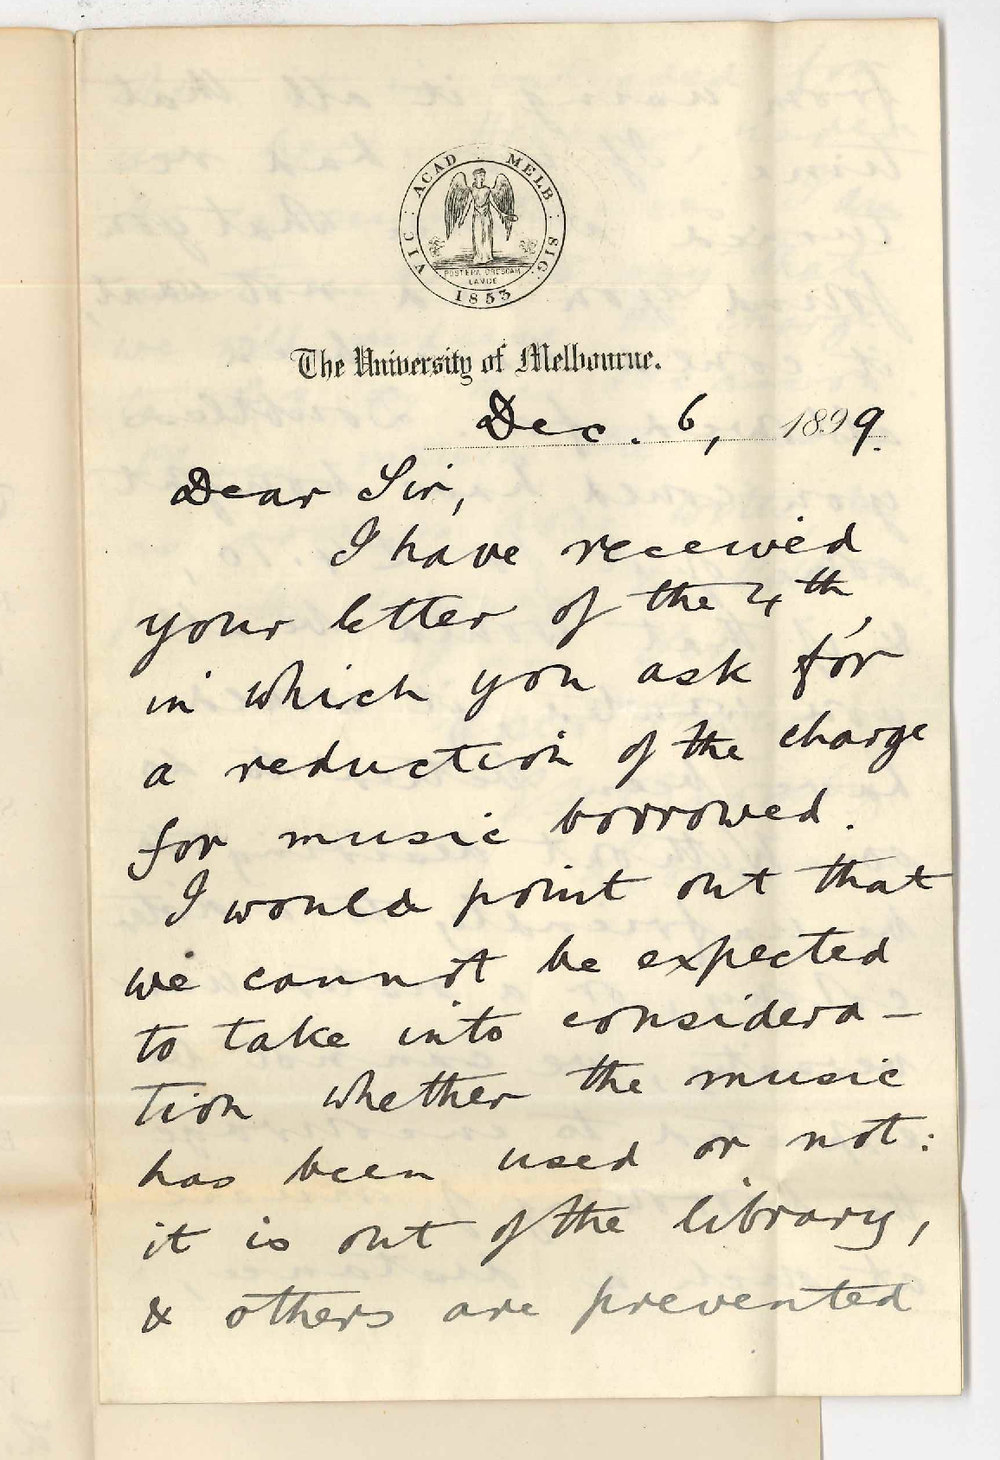 VIC : ACAD : MELB : SIG :
POSTERA CRESCAM
LAVDE
1853
The University of Melbourne.
Dec. 6, 1899.
Dear Sir,
I have received
your letter of the 4th,
in which you ask for
a reduction of the charge
for music borrowed.
I would point out that
we cannot be expected
to take into considera-
tion whether the music
has been used or not:
it is out of the library,
& others are prevented